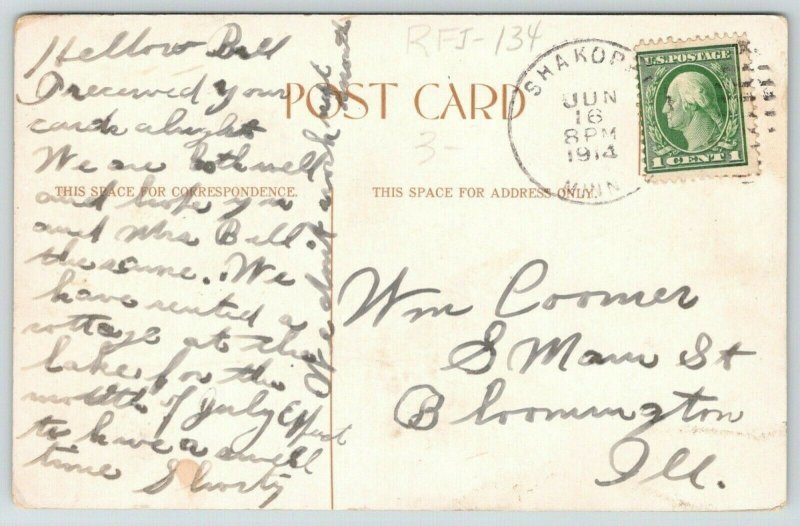 RFJ-134
POST CARD
3-
SHAKOPE
JUN
16
8 PM
1914
MINN
U.S. POSTAGE
1 CENT 1
THIS SPACE FOR CORRESPONDENCE.
THIS SPACE FOR ADDRESS ONLY.
Hellow Bill
I received your
cards alright
We are both well
and hope you
and Mrs Bill
the same. We
have rented a
cottage at the
lake for the
month of July Effect
to have a swell
time Shorty
We dont work next
month
Wm Coomer
S Main St
Bloomington
Ill.